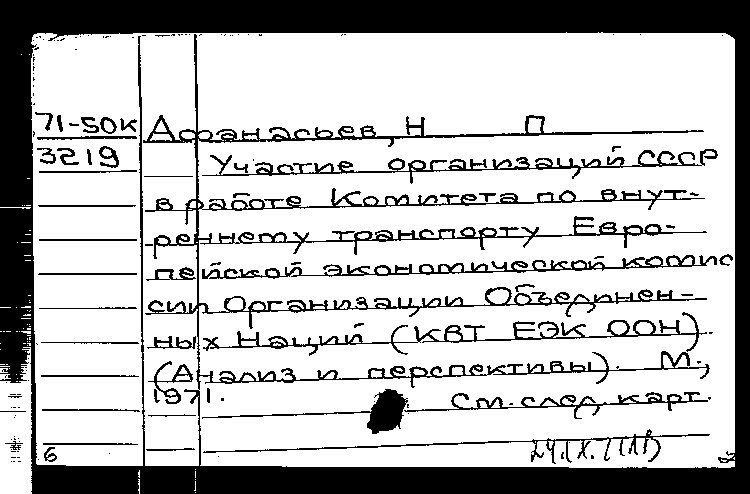 71-50к Афанасьев, Н П
3219 Участие организаций СССР
в работе Комитета по внут-
реннему транспорту Евро-
пейской экономической комис
сии Организации Объединен-
ных Наций (КВТ ЕЭК ООН).
(Анализ и перспективы). М.,
1971. См. след. карт.
6